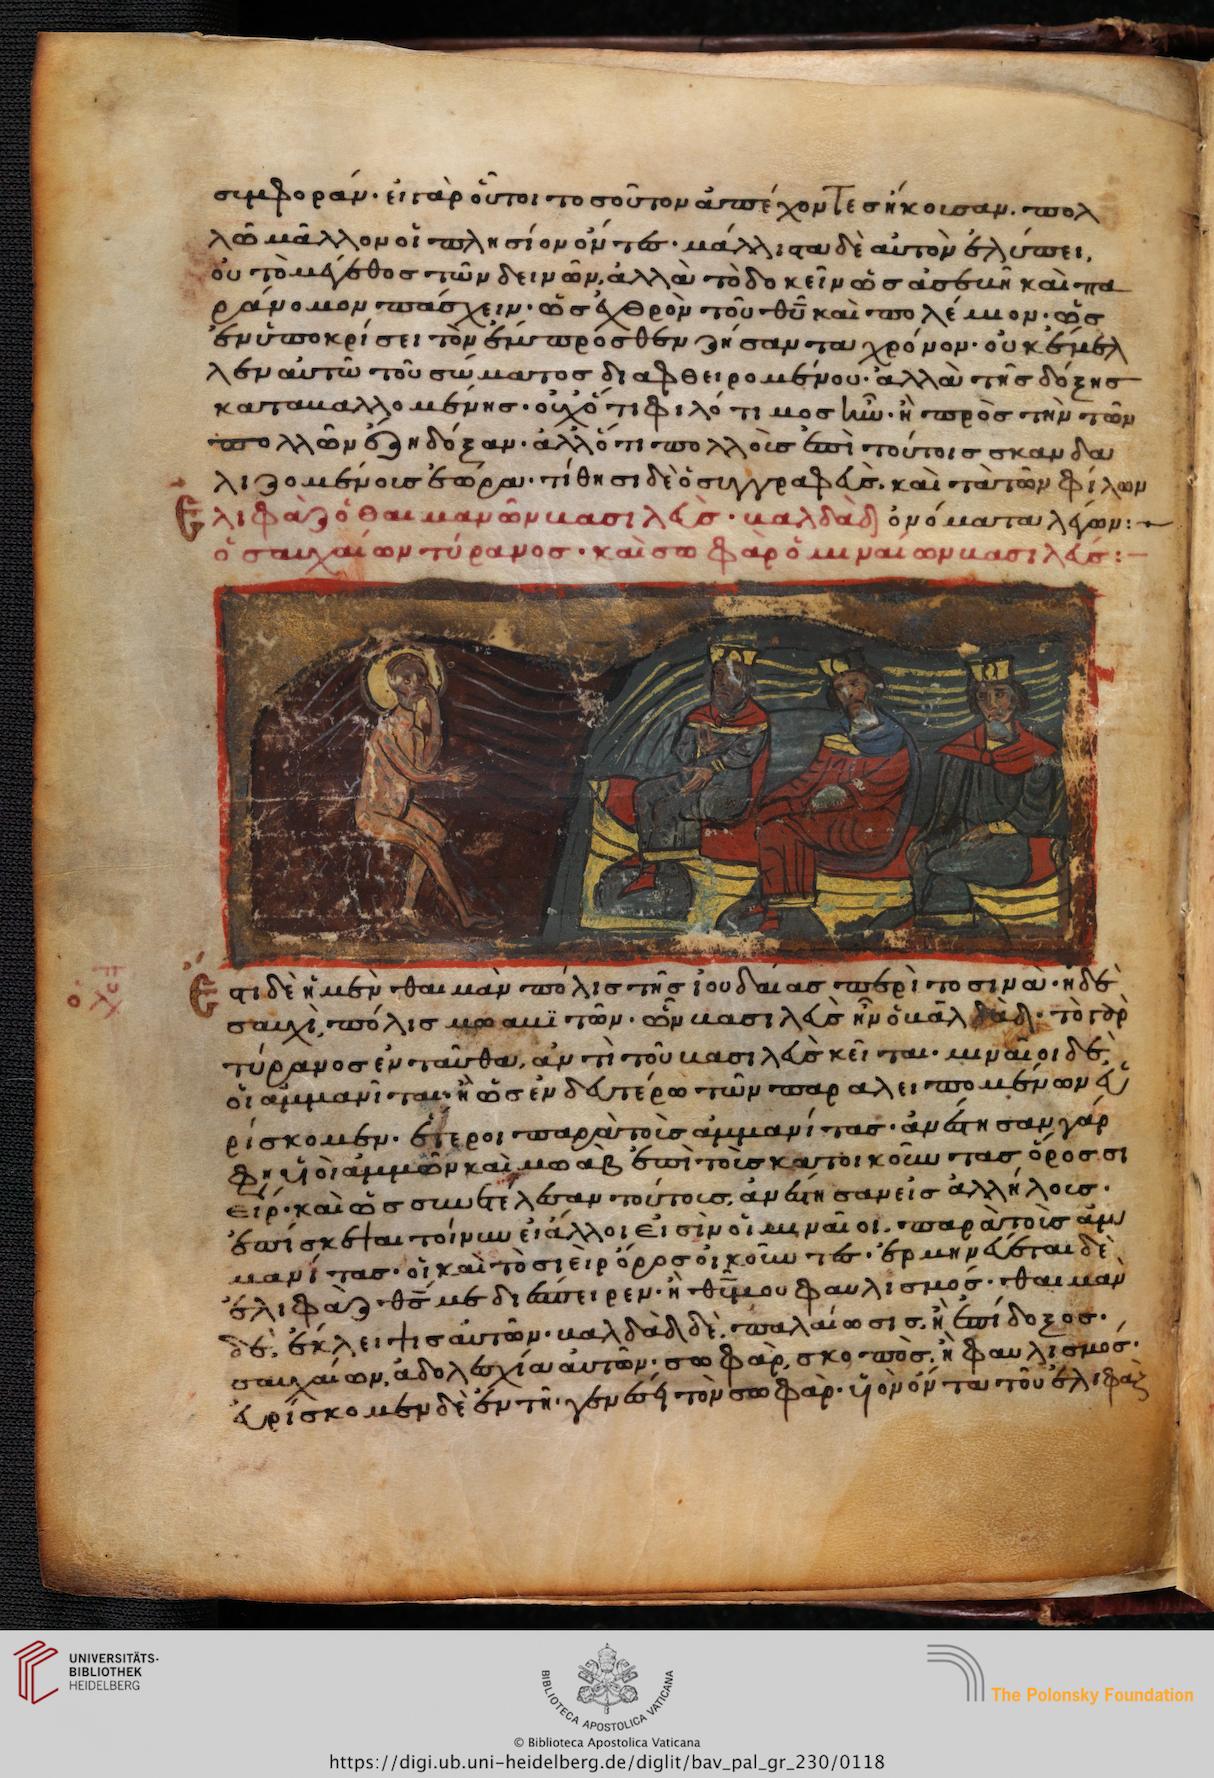 συμφοράν· εἰ γὰρ οὗτοι τοσοῦτον ἀπέχοντες ἤκουσαν. πολ
λῶ μᾶλλον οἱ πλησίον ὄντες· μάλλιστα δὲ αὐτὸν ἐλύπει,
οὐ τὸ μέγεθος τῶν δεινῶν, ἀλλὰ τὸ δοκεῖν ὡς ἀσεβῆ καὶ πα
ράνομον πάσχειν· ὡς ἐχθρὸν τοῦ θῦ καὶ πολέμιον· ὡς
ἐν ὑποκρίσει τὸν ἔμπροσθεν ζήσαντα χρόνον· οὐκ ἔμελ
λεν αὐτῶ τοῦ σώματος διαφθειρομένου· ἀλλὰ τῆς δόξης
καταβαλλομένης· οὐχ ὅτι φιλότιμος ἦν· ἢ πρὸς τὴν τῶν
πολλῶν ἔζη δόξαν· ἀλλ' ὅτι πολλοὺς ἐπὶ τούτοις σκανδα
λιζομένους ἑώρα· τίθησι δὲ ὁ συγγραφεὺς, καὶ τὰ τῶν φίλων
ὀνόματα λέγων:
Ἐλιφὰζ ὁ θαιμανῶν βασιλεὺς· βαλδὰδ
ὁ σαυχαίων τύρανος· καὶ σωφὰρ ὁ μιναίων βασιλεύς:
Ἔστι δὲ ἡ μὲν θαιμὰν πόλις τῆς ἰουδαίας περὶ το σινὰ· ἡ δὲ
σαυχὶ, πόλις μωαβιτῶν· ὧν βασιλεὺς ἦν ὁ βαλδὰδ· τὸ γὰρ
τύρανος ἐνταῦθα, ἀντὶ τοῦ βασιλεὺς κεῖται· μιναῖοι δὲ,
οἱ ἀμμανῖται· ἢ ὡς ἐν δευτέρω τῶν παραλειπομένων εὑ
ρίσκομεν· ἕτεροι παρὰ τοὺς ἀμμανίτας· ἀνέστησαν γάρ
φησι υἱοὶ ἀμμῶν καὶ μωαβ ἐπὶ τοὺς κατοικοῦντας ὄρος σι
είρ· καὶ ὡς συνετέλεσαν τούτους, ἀνέστησαν εἰς ἀλλήλους·
ἐπίσκεψαι τοίνυν εἰ ἄλλοι εἰσὶν οἱ μιναῖοι, παρὰ τοὺς ἀμ
μανίτας· οἱ καὶ τὸ σιεὶρ ὄρος οἰκοῦντες· ἑρμηνεύεται δὲ
ἐλιφὰζ θς με διέσπειρεν· ἢ θῦ μου φαυλισμός· θαιμὰν
δὲ, ἔκλειψις αὐτῶν· βαλδὰδ δὲ, παλαίωσις, ἢ ἐπίδοξος·
σαυχαίων, ἀδολεσχία αὐτῶν· σωφὰρ, σκοπὸς, ἢ φαυλισμός·
εὑρίσκομεν δὲ ἐν τῆ γενέσει τὸν σωφὰρ· υἱὸν ὄντα τοῦ ἐλιφάζ
UNIVERSITÄTS-
BIBLIOTHEK
HEIDELBERG
BIBLIOTECA APOSTOLICA VATICANA
The Polonsky Foundation
© Biblioteca Apostolica Vaticana
https://digi.ub.uni-heidelberg.de/diglit/bav_pal_gr_230/0118